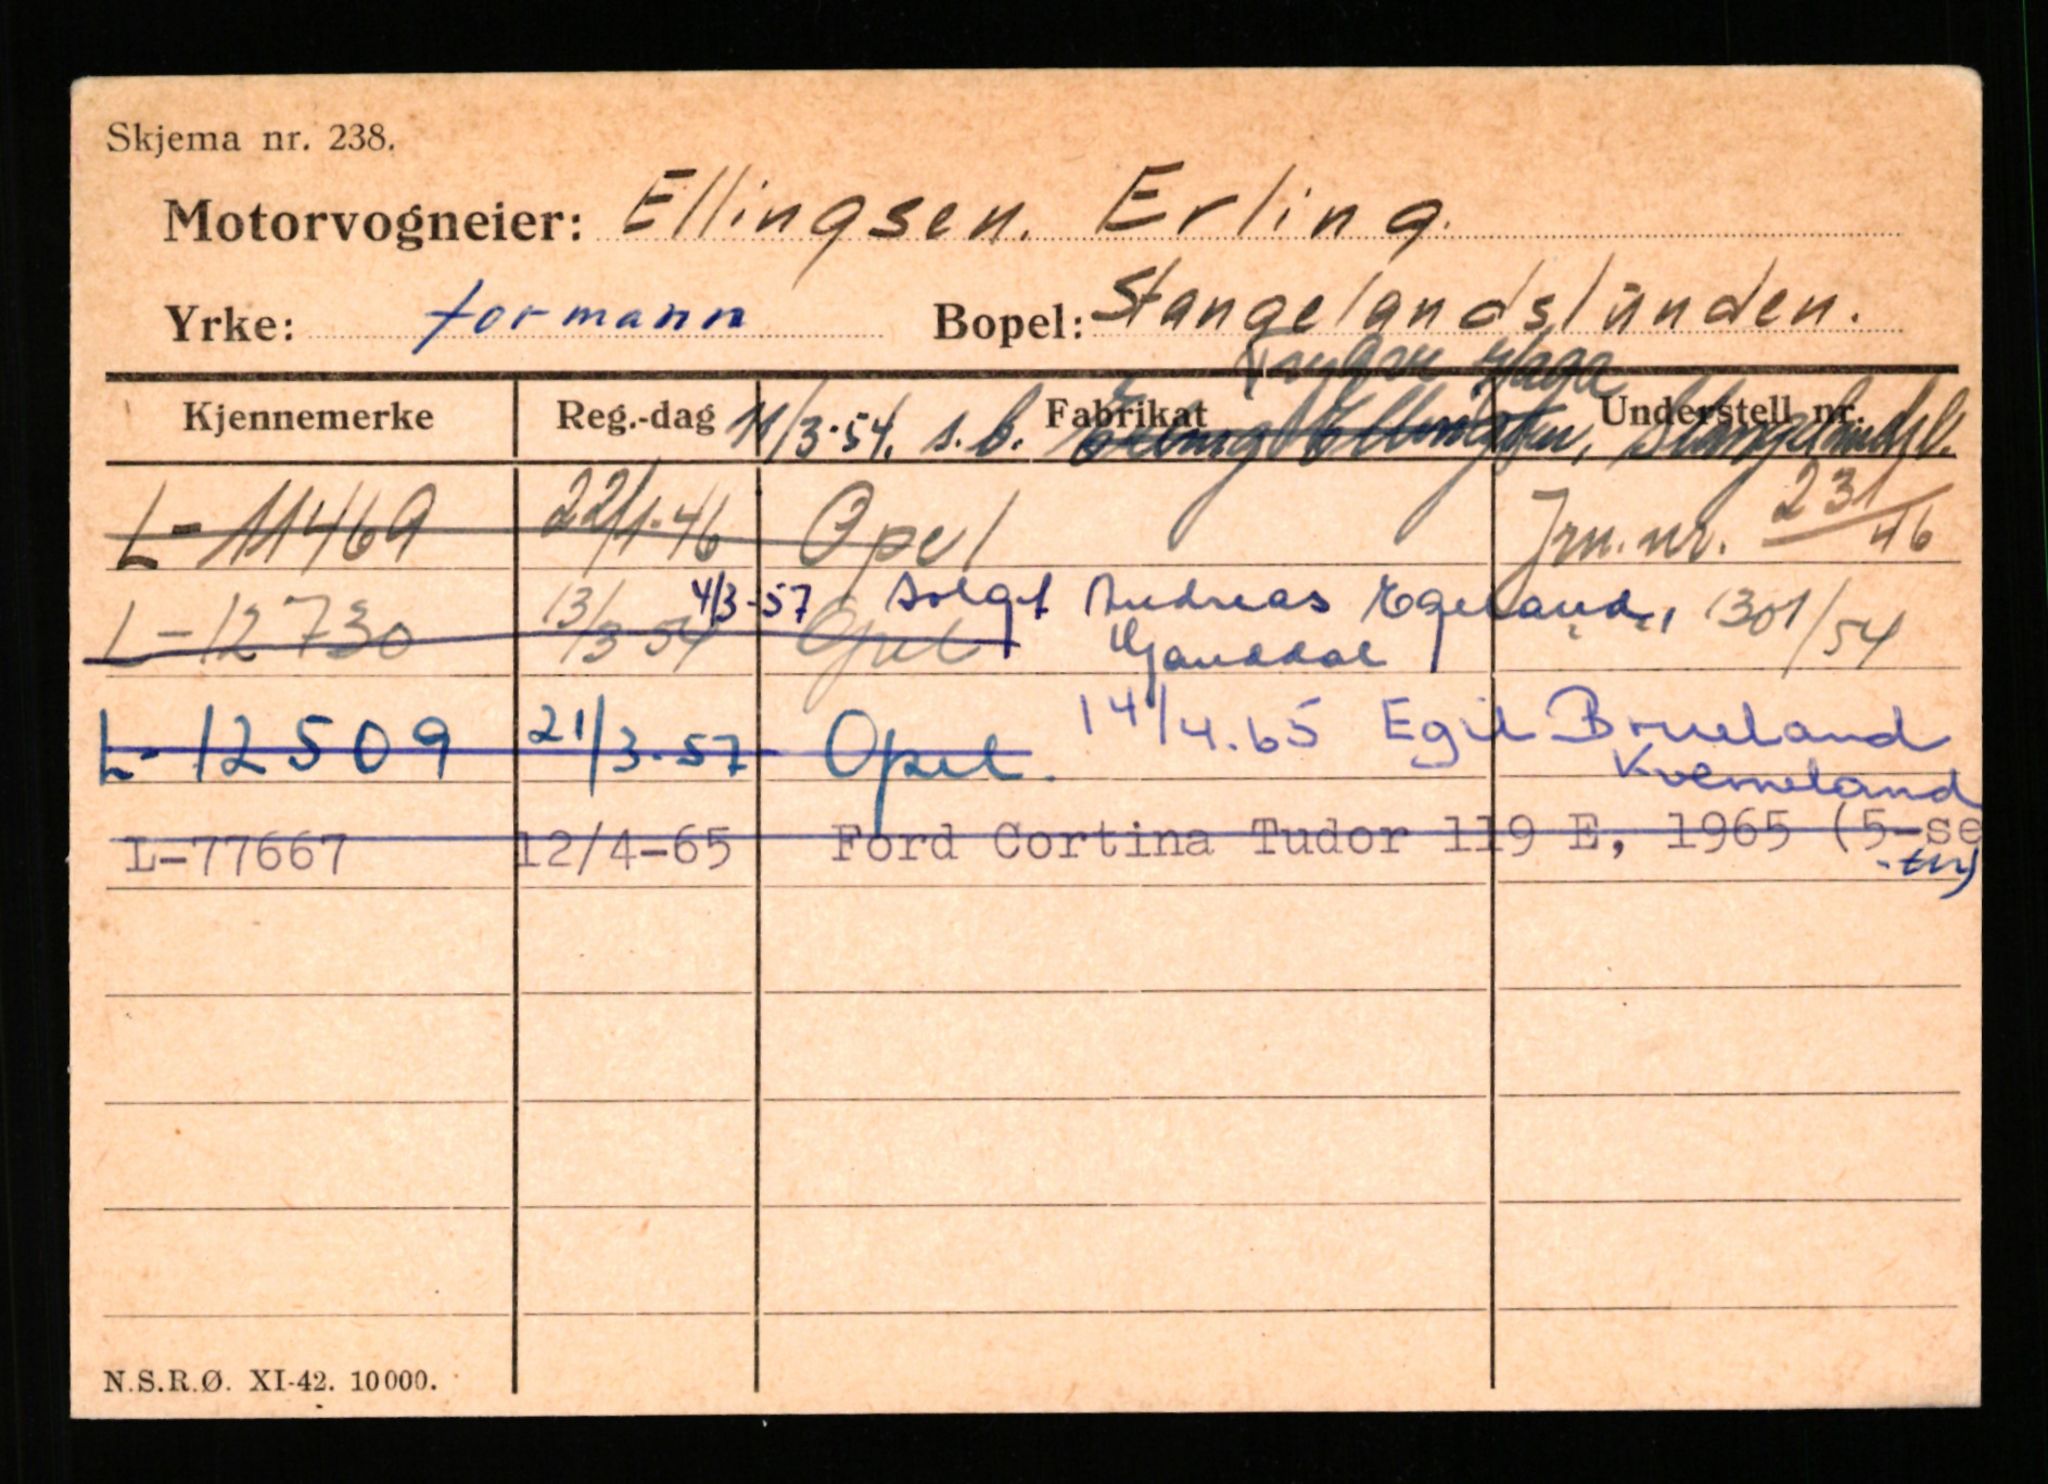 Skjema nr. 238.
Motorvogneier: Ellingsen. Erling.
Yrke: formann Bopel: Stangelandslunden.
Trygve Haga
Kjennemerke Reg.-dag Fabrikat Understell nr.
11/3-54. s. b. Erling Ellingsen, Stangelandsl.
L-11469 22/1-46 Opel Jrn. nr. 231/46
4/3-57 Solgt Andreas Egeland,
L-12730 13/3 54 Opel Ganddal 1301/54
L-12509 21/3-57 Opel. 14/4.65 Egil Brueland
Kverneland
L-77667 12/4-65 Ford Cortina Tudor 119 E, 1965 (5-se
-ter)
N.S.R.Ø. XI-42. 10000.